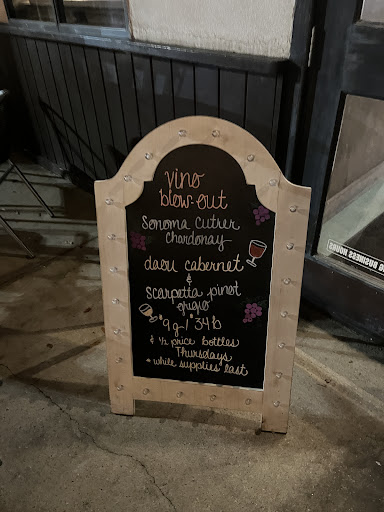 vino
blow-out
Sonoma Cutrer
Chardonay
daou cabernet
&
Scarpetta pinot
grigio
$9 g - $34 b
& ½ price bottles
Thursdays
* while supplies last
BUSINESS HOURS